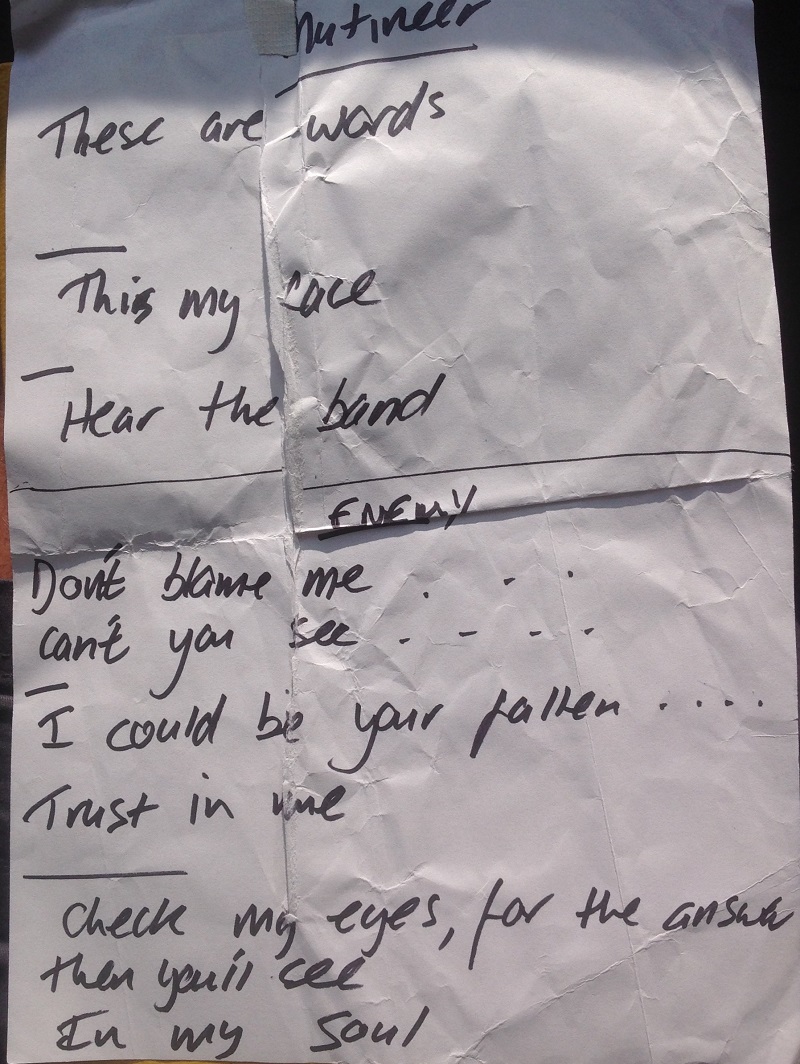 Mutineer
These are words
This my face
Hear the band
ENEMY
Don't blame me . - .
can't you see . - - - .
I could be your fallen . . . .
Trust in me
check my eyes, for the answer
then you'll see
In my soul